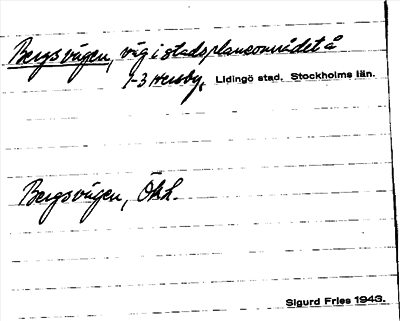 Bergsvägen, väg i stadsplaneområdet å
1-3 Hersby, Lidingö stad. Stockholms län.
Bergsvägen, Ökk.
Sigurd Fries 1943.